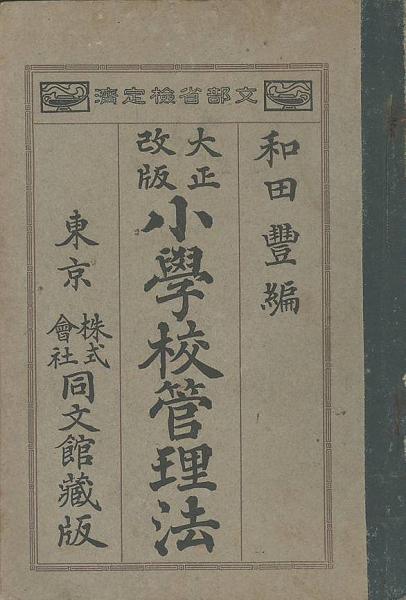 文部省檢定濟
和田豐編
大正改版
小學校管理法
東京
株式會社
同文館藏版